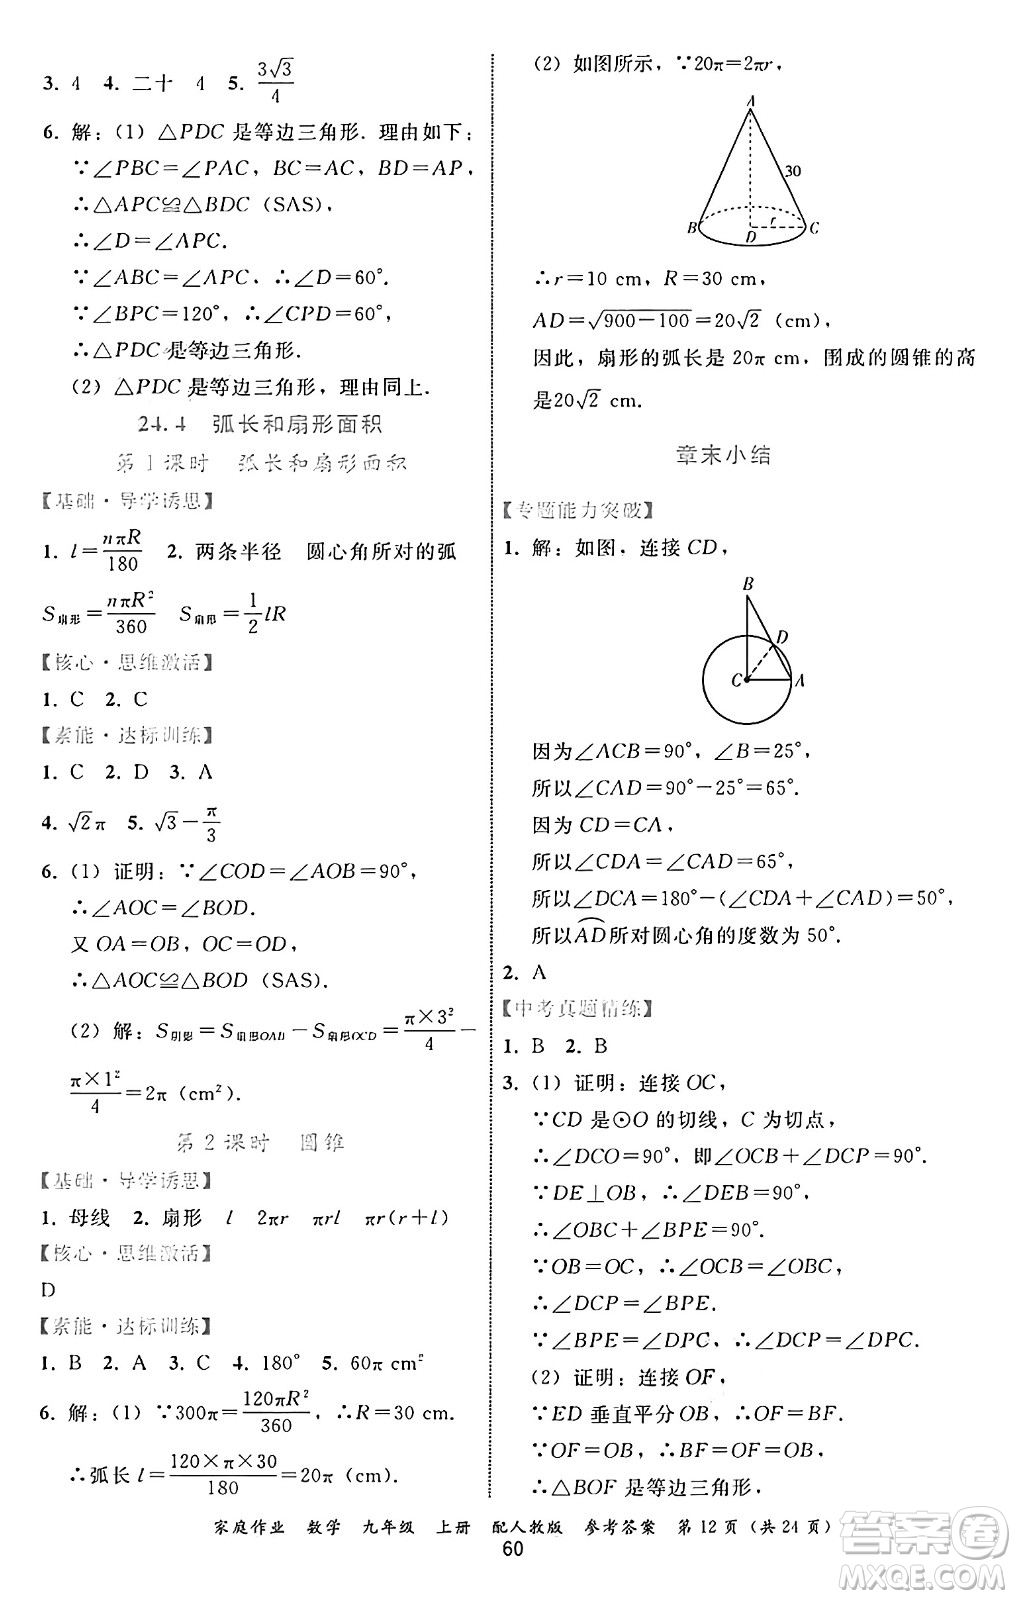 3. 4  4. 二十  4  5. 3√3/4
6. 解：（1）△PDC 是等边三角形. 理由如下：
∵∠PBC＝∠PAC，BC＝AC，BD＝AP，
∴△APC≌△BDC（SAS），
∴∠D＝∠APC.
∵∠ABC＝∠APC，∴∠D＝60°.
∵∠BPC＝120°，∴∠CPD＝60°，
∴△PDC 是等边三角形.
（2）△PDC是等边三角形，理由同上.
24.4 弧长和扇形面积
第1课时 弧长和扇形面积
【基础·导学诱思】
1. l＝nπR/180  2. 两条半径 圆心角所对的弧
S扇形＝nπR²/360  S扇形＝1/2 lR
【核心·思维激活】
1. C  2. C
【素能·达标训练】
1. C  2. D  3. A
4. √2π  5. √3－π/3
6.（1）证明：∵∠COD＝∠AOB＝90°，
∴∠AOC＝∠BOD.
又 OA＝OB，OC＝OD，
∴△AOC≌△BOD（SAS）.
（2）解：S阴影＝S扇形OAB－S扇形OCD＝π×3²/4－
π×1²/4＝2π（cm²）.
第2课时 圆锥
【基础·导学诱思】
1. 母线  2. 扇形  l  2πr  πrl  πr(r＋l)
【核心·思维激活】
D
【素能·达标训练】
1. B  2. A  3. C  4. 180°  5. 60π cm²
6. 解：（1）∵300π＝120πR²/360，∴R＝30 cm.
∴弧长 l＝120×π×30/180＝20π（cm）.
（2）如图所示，∵20π＝2πr，
A
30
B
D
r
C
∴r＝10 cm，R＝30 cm，
AD＝√900－100＝20√2（cm），
因此，扇形的弧长是 20π cm，围成的圆锥的高
是20√2 cm.
章末小结
【专题能力突破】
1. 解：如图，连接 CD，
B
D
C
A
因为∠ACB＝90°，∠B＝25°，
所以∠CAD＝90°－25°＝65°.
因为 CD＝CA，
所以∠CDA＝∠CAD＝65°，
所以∠DCA＝180°－（∠CDA＋∠CAD）＝50°，
所以A͡D所对圆心角的度数为 50°.
2. A
【中考真题精练】
1. B  2. B
3.（1）证明：连接 OC，
∵CD 是⊙O 的切线，C 为切点，
∴∠DCO＝90°，即∠OCB＋∠DCP＝90°.
∵DE⊥OB，∴∠DEB＝90°，
∴∠OBC＋∠BPE＝90°.
∵OB＝OC，∴∠OCB＝∠OBC，
∴∠DCP＝∠BPE.
∵∠BPE＝∠DPC，∴∠DCP＝∠DPC.
（2）证明：连接 OF，
∵ED 垂直平分OB，∴OF＝BF.
∵OF＝OB，∴BF＝OF＝OB，
∴△BOF 是等边三角形，
家庭作业 数学 九年级 上册 配人教版 参考答案 第12页（共24页）
60
作业精灵
MXQE.COM